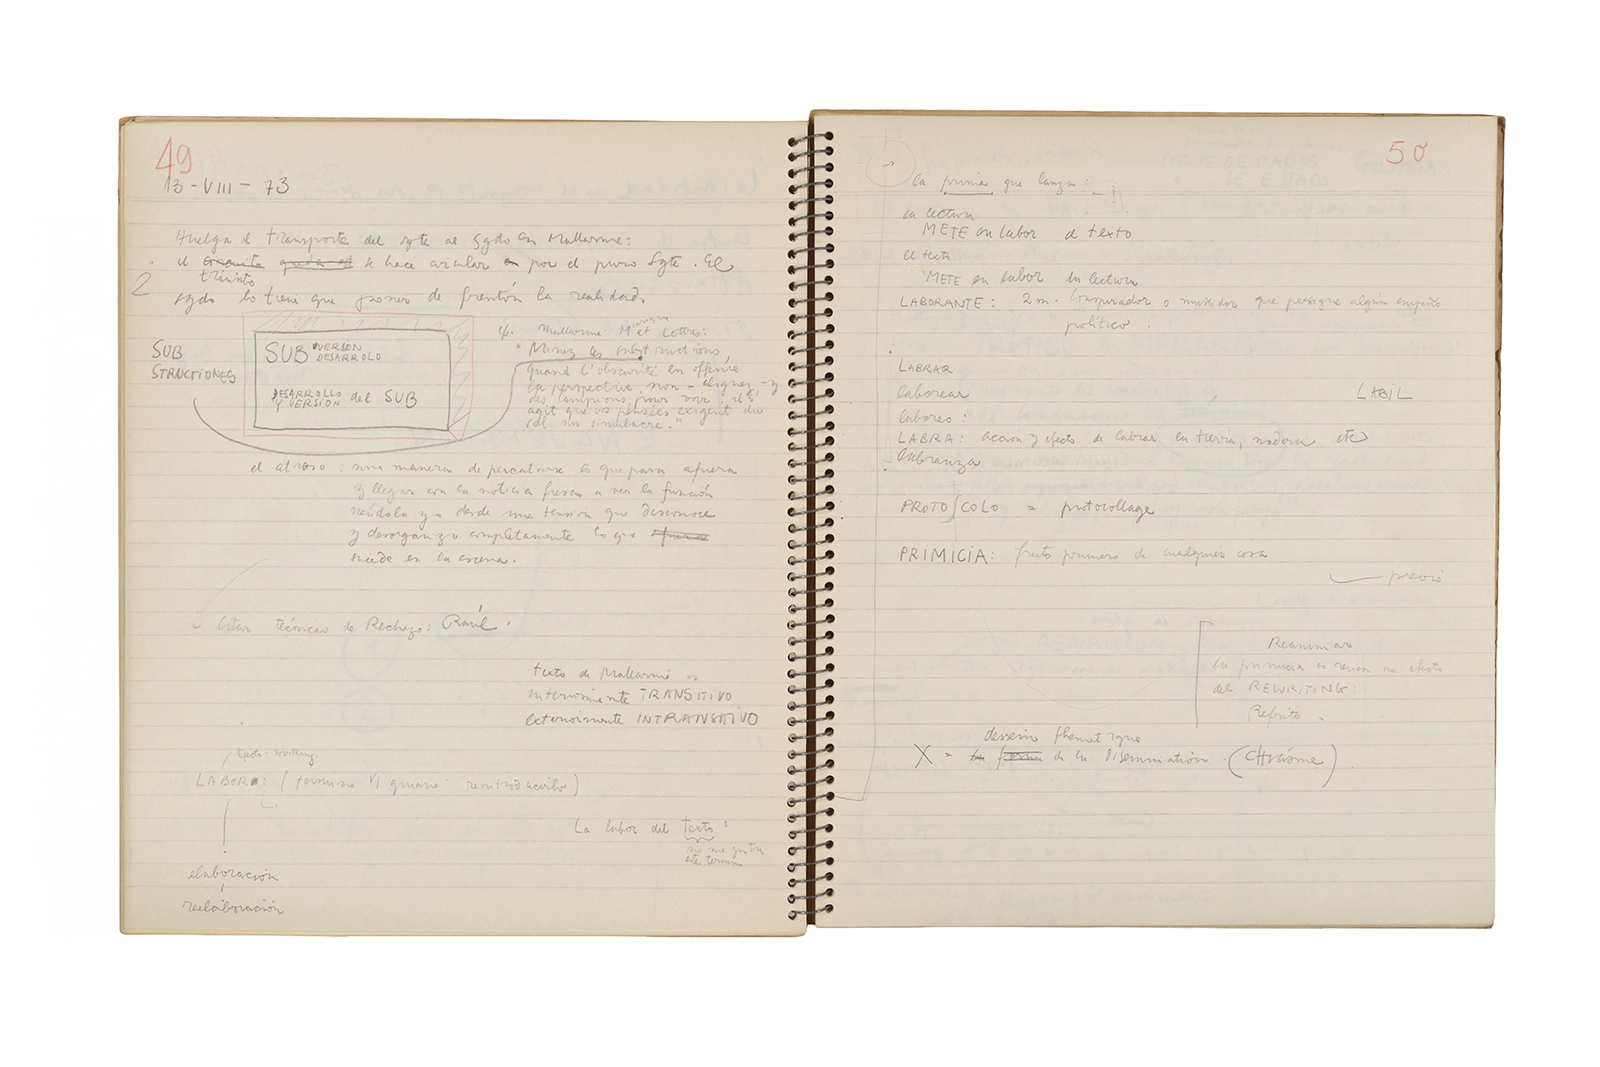 49
13-VIII-73
Huelga el transporte del sgte al sgdo en Mallarmé:
el circuito queda se hace circular en por el puro Sgte. El
tránsito
2
sgdo lo tiene que poner de frentón la realidad.
SUB
STRUCTIONES
SUB VERSION
DESARROLLO
DESARROLLO
Y VERSION del SUB
cf. Mallarmé Musique et Lettres:
"Minez les substructions,
quand l'obscurité en offense
la perspective, non - alignez-y
des lampions, pour voir: il s'
agit que vos pensées exigent du
sol un simulacre."
el atraso: una manera de percatarse lo que pasa afuera
y llegar con la noticia fresca a ver la función
viéndola ya desde una tensión que desconoce
y desorganiza completamente lo que
sucede en la escena.
Citar técnicas de Rechazo: Raúl.
texto de Mallarmé es
interiormente TRANSITIVO
exteriormente INTRANSITIVO
LABOR: (término reintroducirlo)
La labor del texto:
no me gusta
este término
elaboración
reelaboración
50
la primicia que lanza:
la lectura
METE en labor el texto
el texto
METE en labor la lectura
LABORANTE: 2 m. Conspirador o muñidor que persigue algún empeño
político.
LABRAR
laborear
LABIL
laboreo:
LABRA: acción y efecto de labrar en tierra, madera etc
labranza
PROTO/COLO = protocollage
PRIMICIA: fruto primero de cualquier cosa
previo
Reanimar
la primicia es recién un efecto
del REWRITING:
Refrito.
dessein thématique
X = la forma de la Dissémination. (CHriasme)